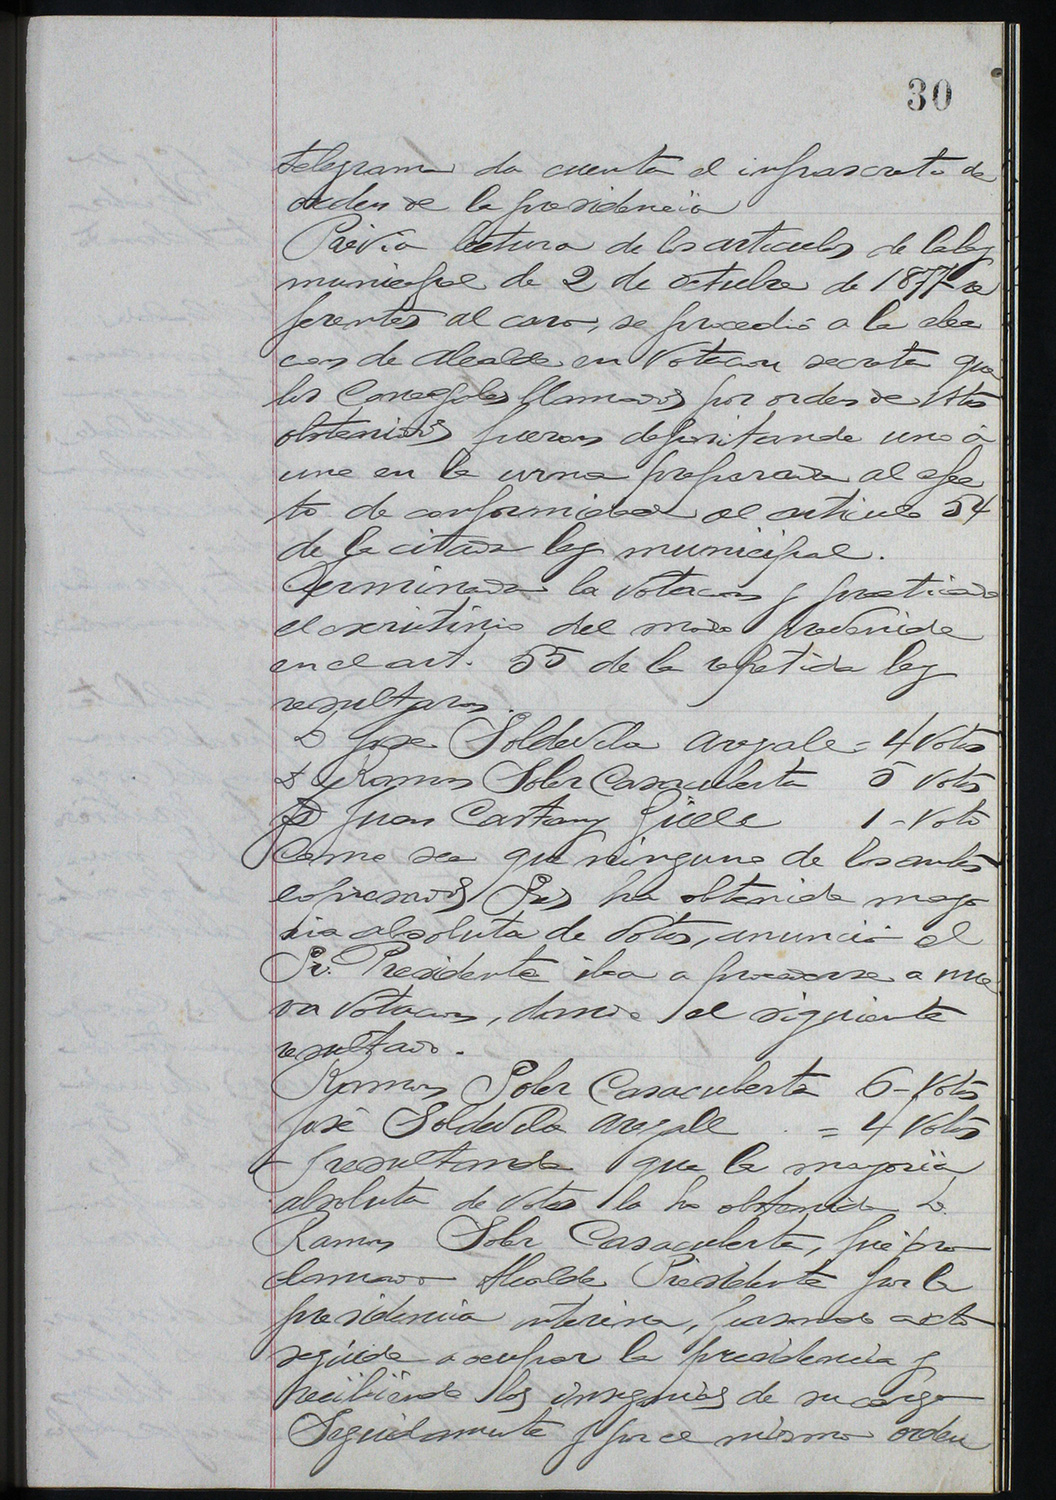 30
telegrama da cuenta el infrascrito de
orden de la presidencia
Previa lectura de los articulos de la ley
municipal de 2 de octubre de 1877 re
ferentes al caso, se procedió a la elec
cion de Alcalde en votacion secreta que
los Concejales llamados por orden de votos
obtenidos fueron depositando uno á
uno en la urna preparada al efec
to de conformidad al articulo 54
de la citada ley municipal.
Terminada la votacion y practicado
el escrutinio del modo prevenido
en el art. 55 de la repetida ley
resultaron.
D José Soldevila Aregall = 4 Votos
D Ramon Soler Casacuberta 5 Votos
D Juan Castany Güell 1 - Voto
Como sea que ninguno de los antes
expresados Sres ha obtenido mayo
ria absoluta de Votos, anunció el
Sr. Presidente iba a procederse a nue
va votacion, dando el siguiente
resultado.
Ramon Soler Casacuberta 6 - Votos
José Soldevila Aregall = 4 Votos
Y resultando que la mayoria
absoluta de votos la ha obtenido D.
Ramon Soler Casacuberta, fué pro
clamado Alcalde Presidente por la
presidencia interina, pasando acto
seguido a ocupar la presidencia y
recibiendo las insignias de su cargo
Seguidamente y por el mismo orden